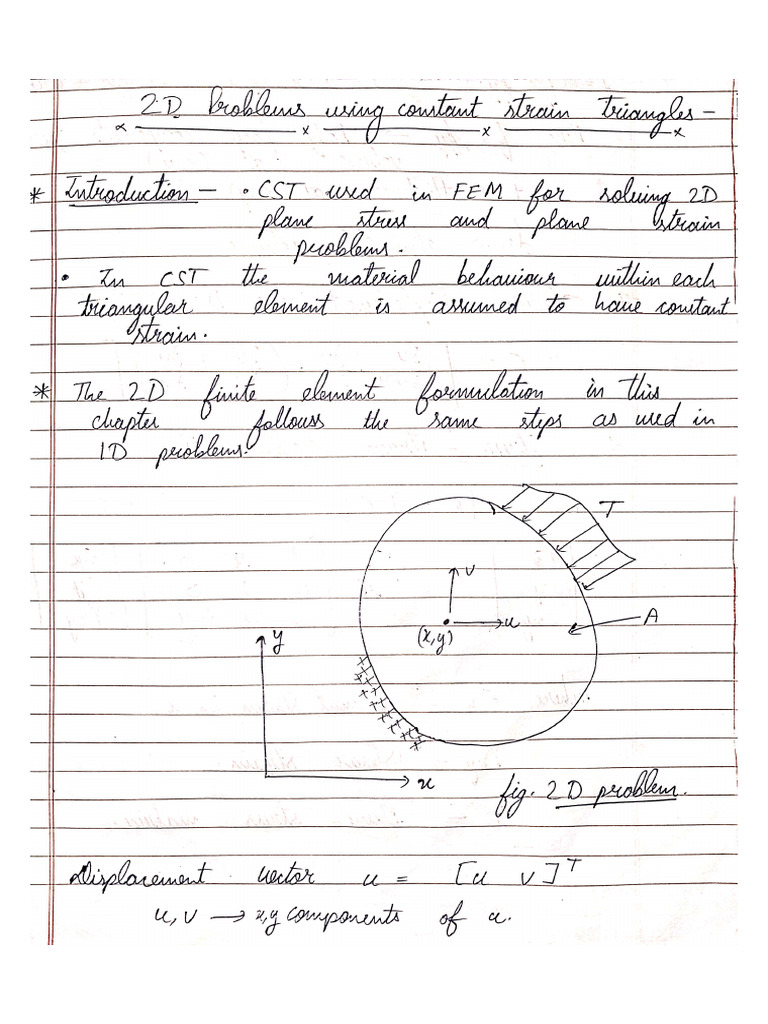 2D Problems using constant strain triangles –
* Introduction – • CST used in FEM for solving 2D
plane stress and plane strain
problems.
• In CST the material behaviour within each
triangular element is assumed to have constant
strain.
* The 2D finite element formulation in this
chapter follows the same steps as used in
1D problems.
T
v
u
A
(x,y)
y
x
fig. 2D problem.
Displacement vector u = [u v]ᵀ
u, v → x,y components of u.